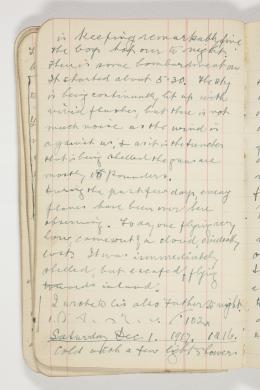 is keeping remarkably fine
the boys hop our to night
There is some bombardment on
It started about 5-30. The sky
is being continually lit up with
vivid flashes, but there is not
much noise as the wind is
against us, & as it is the trenches
that is being shelled the guns are
mostly 18 Pounders.
During the past few days enemy
planes have been over here
observing. Today one flying very
low, came out of a cloud, evidently
lost. It was immediately
shelled, but escaped, flying
towards inland.
I wrote to Lis also Father to night
102
Saturday Dec. 1. 1917.
Cold with a few light showers